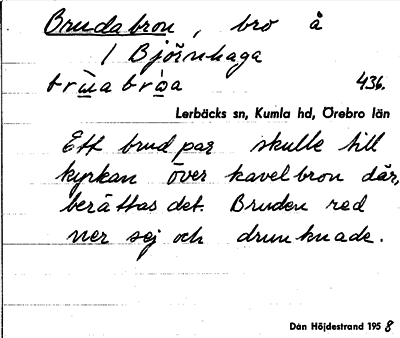 Brudabron, bro å
/ Björnhaga
436.
Lerbäcks sn, Kumla hd, Örebro län
Ett brud par skulle till
kyrkan över kavelbron där,
berättas det. Bruden red
ner sej och drunknade.
Dan Höjdestrand 1958